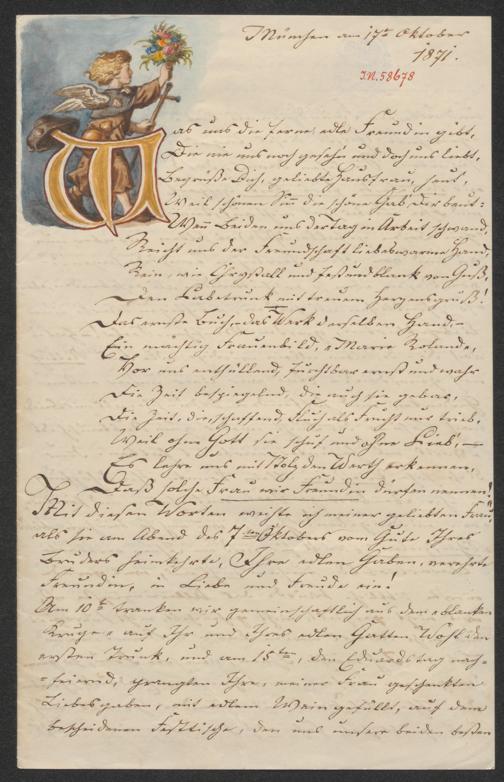 München am 17t Oktober
1871.
I.N. 58678
Was uns die ferne, edle Freundin gibt,
Die nie uns noch gesehn und doch uns liebt,
Begrüße Dich, geliebte Hausfrau, heut,
Weil schönen Sinn die schöne Gab' Dir beut:
Wenn Beiden uns der Tag in Arbeit schwand,
Reicht uns der Freundschaft liebeswarme Hand,
Rein, wie Chrystall und fest und blank von Guß,
Den Labetrunk mit treuem Herzensgruß!
Das ernste Buch, das Werk derselben Hand,
Ein mächtig Frauenbild, "Marie Roland",
Vor uns enthüllend, furchtbar ernst und wahr
Die Zeit bespiegelnd, die auch sie gebar,
Die Zeit, die, schaffend, Fluch als Frucht nur trieb,
Weil ohne Gott sie schuf und ohne Lieb', —
Es lehre uns mit Stolz den Werth erkennen,
Daß solche Frau wir Freundin dürfen nennen!
Mit diesen Worten weihte ich meiner geliebten Frau,
als sie am Abend des 7ten Oktobers vom Gute Ihres
Bruders heimkehrte, Ihre edlen Gaben, verehrte
Freundin, in Liebe und Freude ein!
Am 10t tranken wir gemeinschaftlich aus dem "blanken
Kruge" auf Ihr und Ihres edlen Gatten Wohl den
ersten Trunk, und am 15ten, den Eduardstag nach-
feiernd, prangten Ihre, meiner Frau geschenkten
Liebesgaben, mit edlem Wein gefüllt, auf dem
bescheidenen Festtische, den uns unsere beiden besten